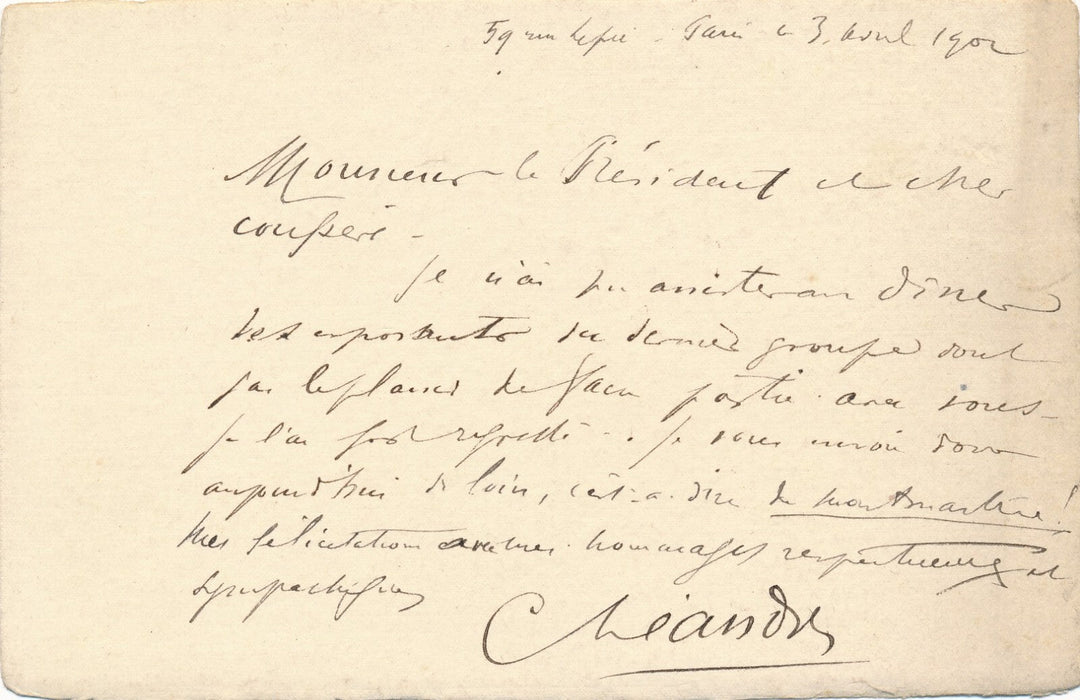 59 rue Lepic - Paris le 3 avril 1902
Monsieur le Président et cher
confrère -
Je n'ai pu assister au dîner
des exposants du dernier groupe dont
j'ai le plaisir de faire partie avec vous -
Je l'ai fort regretté. Je vous envoie donc
aujourd'hui de loin, c'est-à-dire de Montmartre!
Mes félicitations avec mes hommages respectueux et
sympathiques
CLéandre